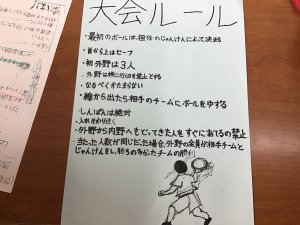 大会ルール
・最初のボールは、担任のじゃんけんによって決める
・首から上はセーフ
・初外野は3人
・外野は横に行くのを禁止とする
・なるべくかたまらない
・線から出たら相手のチームにボールをゆずる
・しんぱんは絶対
・入れかわり
・外野から内野へもどってきた人をすぐにあてるの禁止
・当たった人数が同じだった場合、外野の全員が相手チームと
じゃんけんをし、勝ちの多かったチームの勝利